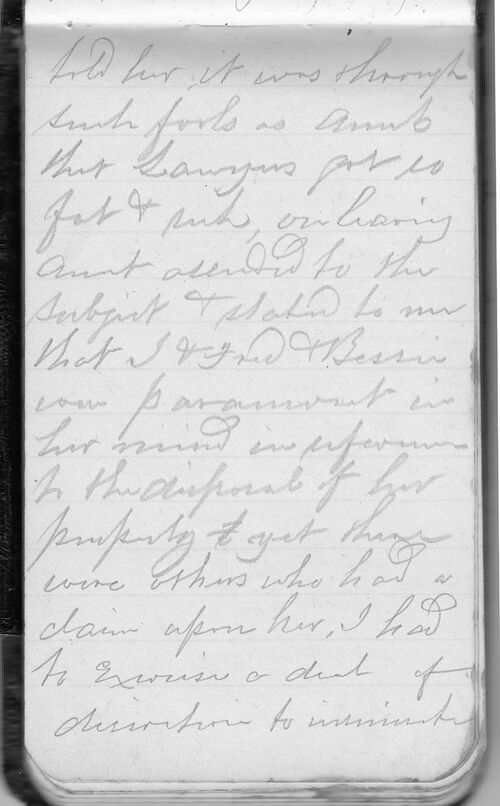 told her, it was through
such fools as Aunts
that Lawyers got so
fat & rich, on leaving
Aunt asended to the
subject & stated to me
that I & Fred & Bessie
were paramount in
her mind in referrence
to the disposal of her
property & yet there
were others who had a
claim upon her, I had
to Exercise a deal of
discretion to insinuate